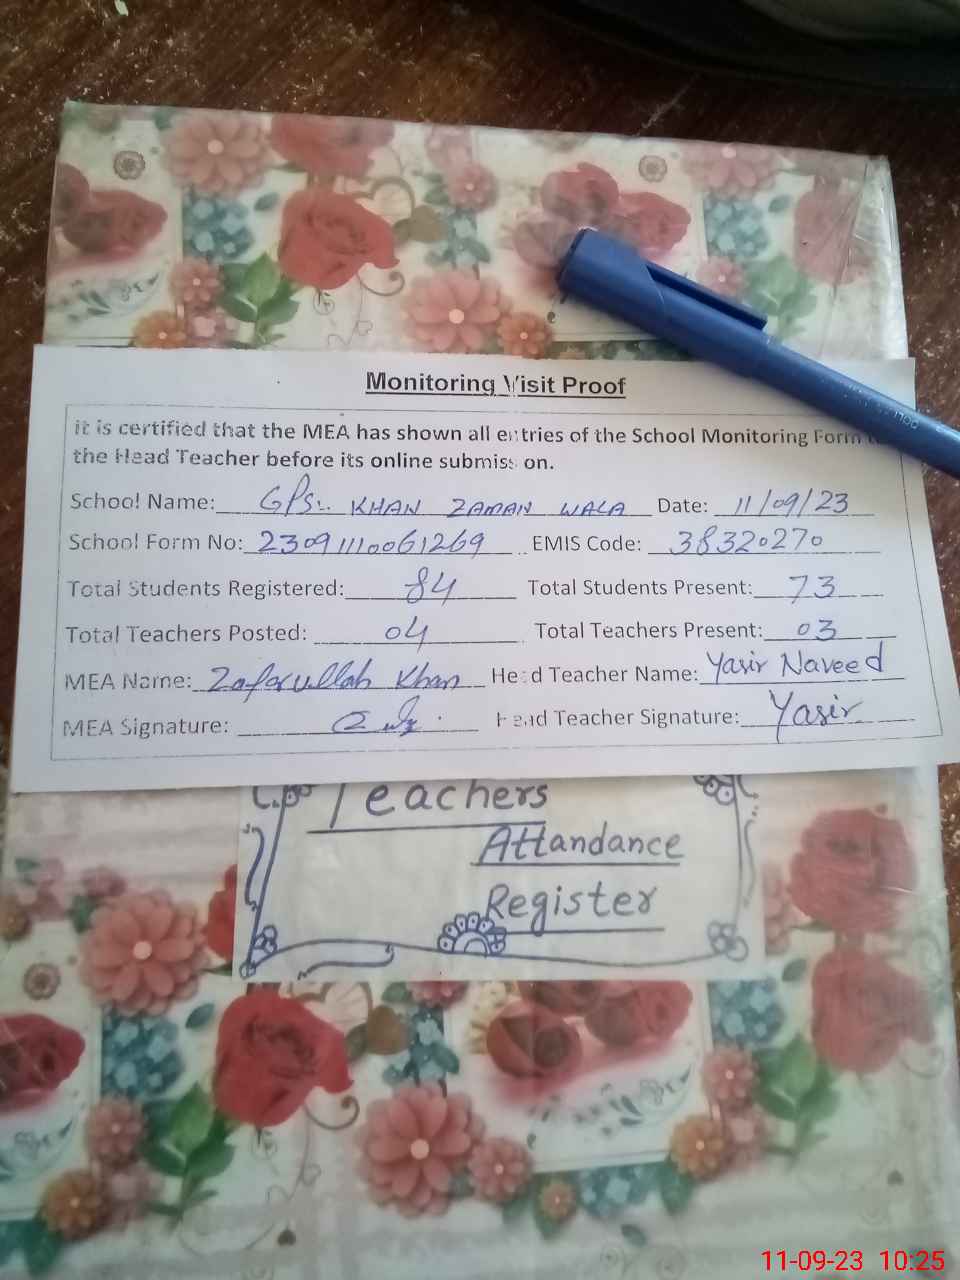 Monitoring Visit Proof
it is certified that the MEA has shown all entries of the School Monitoring Form
the Head Teacher before its online submission.
School Name: GPS. KHAN ZAMAN WALA Date: 11/09/23
School Form No: 23091110061269 EMIS Code: 38320270
Total Students Registered: 84 Total Students Present: 73
Total Teachers Posted: 04 Total Teachers Present: 03
MEA Name: Zafarullah Khan Head Teacher Name: Yasir Naveed
MEA Signature: Head Teacher Signature: Yasir
Teachers
Attandance
Register
11-09-23 10:25